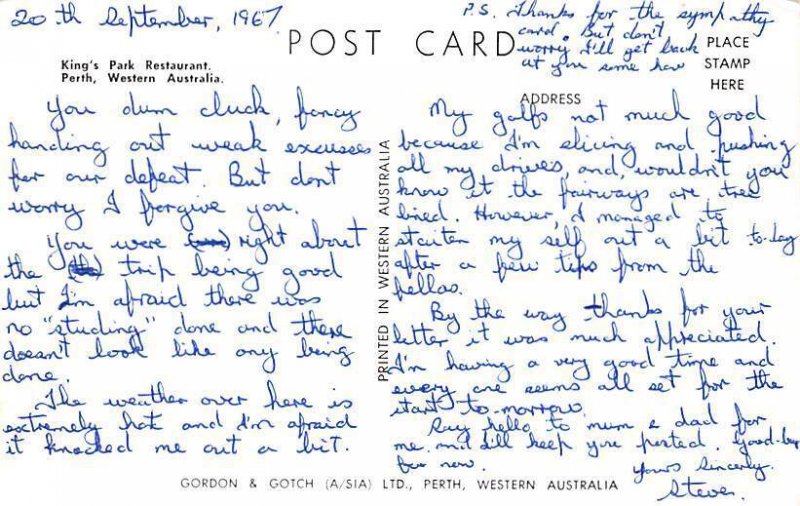 20th September, 1967
POST CARD
King's Park Restaurant.
Perth, Western Australia.
P.S. Thanks for the sympathy
card. But don't
worry I'll get back
at you some how
PLACE
STAMP
HERE
ADDRESS
You dum cluck, fancy
handing out weak excuses
for our defeat. But dont
worry I forgive you.
You were right about
the trip being good
but I'm afraid there was
no "studing" done and there
doesn't look like any being
done.
The weather over here is
extremely hot and I'm afraid
it knocked me out a bit.
PRINTED IN WESTERN AUSTRALIA
My golfs not much good
because I'm slicing and pushing
all my drives, and, wouldn't you
know it the fairways are tree
lined. However, I managed to
staiten my self out a bit to-day
after a few tips from the
fellas.
By the way thanks for your
letter it was much appreciated.
I'm having a very good time and
every one seems all set for the
start to-morrow.
Say hello to mum & dad for
me and I'll keep you posted. Good-bye
for now.
Yours Sincerly.
Steven.
GORDON & GOTCH (A/SIA) LTD., PERTH, WESTERN AUSTRALIA